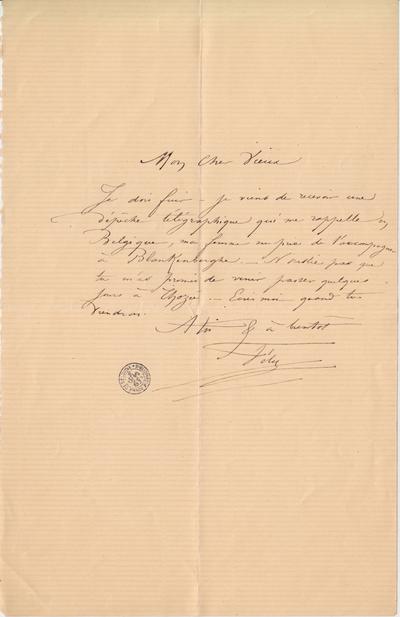 Mon cher Vieux
Je dois fuir – je viens de recevoir une
dépêche télégraphique qui me rappelle en
Belgique, ma femme me prie de l'accompagner
à Blankenberghe – N'oublie pas que
tu m'as promis de venir passer quelques
jours à Thozée – Ecris moi quand tu
viendras.
à bientôt
Fély